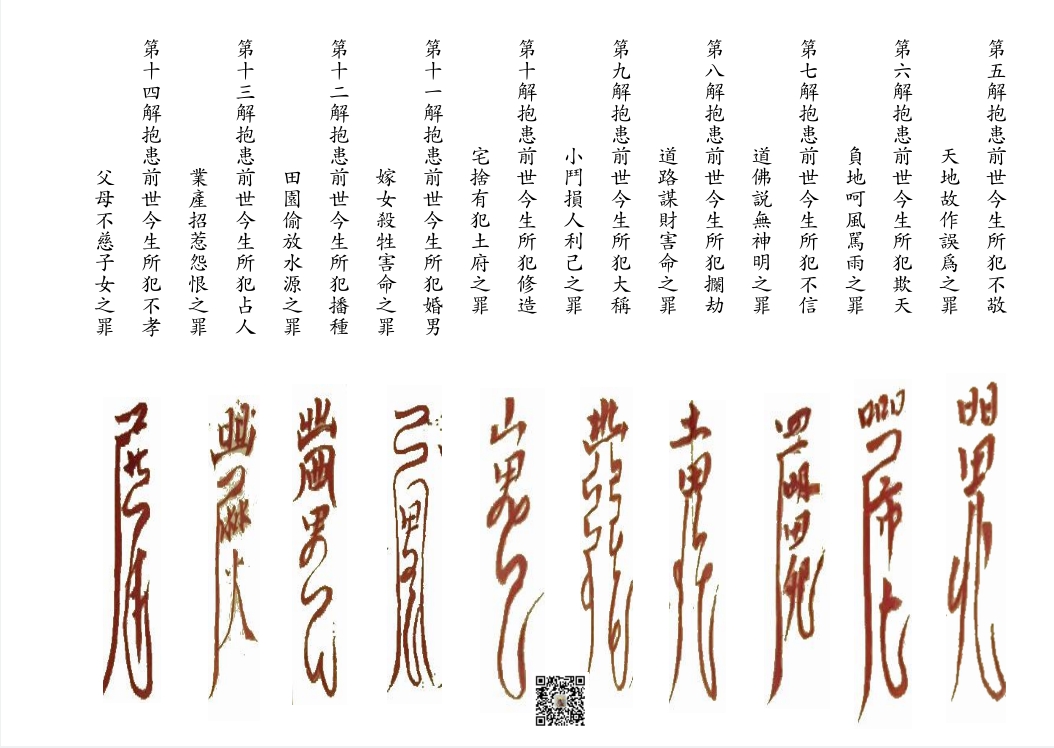 第五解抱患前世今生所犯不敬
天地故作誤爲之罪
第六解抱患前世今生所犯欺天
負地呵風罵雨之罪
第七解抱患前世今生所犯不信
道佛説無神明之罪
第八解抱患前世今生所犯攔劫
道路謀財害命之罪
第九解抱患前世今生所犯大稱
小鬥損人利己之罪
第十解抱患前世今生所犯修造
宅捨有犯土府之罪
第十一解抱患前世今生所犯婚男
嫁女殺牲害命之罪
第十二解抱患前世今生所犯播種
田園偷放水源之罪
第十三解抱患前世今生所犯占人
業產招惹怨恨之罪
第十四解抱患前世今生所犯不孝
父母不慈子女之罪